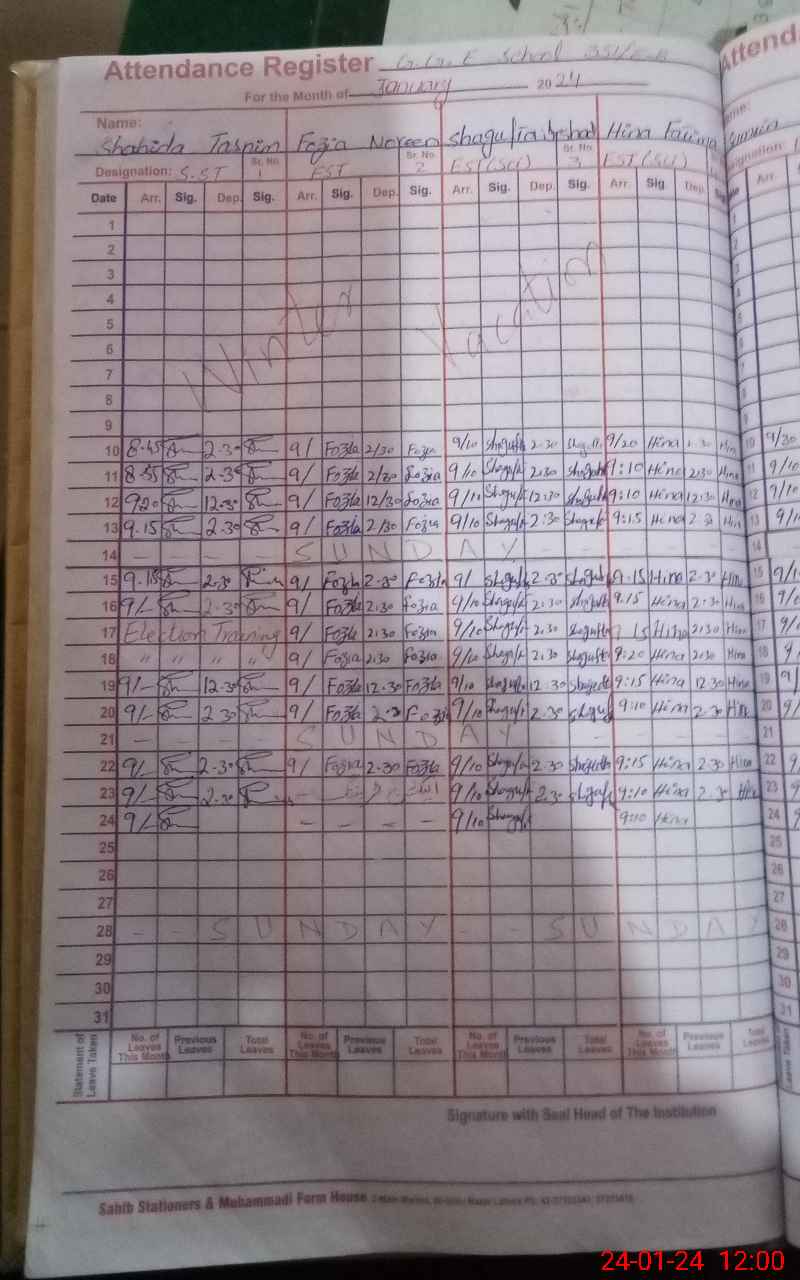 Attendance Register G.G.E School 351/E.B
For the Month of January 2024
Name: Shahida Tasnim Fozia Noreen Shagufta Hina Farima
Designation: S.ST Sr. No. 1 EST Sr. No. 2 EST(Sci) Sr. No. 3 EST(Sci)
Date Arr. Sig. Dep. Sig. Arr. Sig. Dep. Sig. Arr. Sig. Dep. Sig. Arr. Sig. Dep. Sig
1
2
3
4
5
6
7
8
9
Winter Vacation
10 8.45 2.30 9/ Fozia 2/30 Fozia 9/10 Shagufta 2.30 Shagufta 9/20 Hina 2.30 Hin
11 8.55 2.30 9/ Fozia 2/30 Fozia 9/10 Shagufta 2.30 Shagufta 9:10 Hina 2.30 Hina
12 9.20 12.30 9/ Fozia 12/30 Fozia 9/10 Shagufta 12.30 Shagufta 9:10 Hina 12.30 Hina
13 9.15 2.30 9/ Fozia 2/30 Fozia 9/10 Shagufta 2.30 Shagufta 9:15 Hina Hin
14 - - - - S U N D A Y - - - - -
15 9.15 2.30 9/ Fozia 2.30 Fozia 9/ Shagufta 2.30 Shagufta 9.15 Hina 2.30 Hina
16 9/- 2.30 9/ Fozia 2.30 Fozia 9/10 Shagufta 2.30 Shagufta 9.15 Hina 2.30 Hina
17 Election Training 9/ Fozia 2.30 Fozia 9/10 Shagufta 2.30 Shagufta Hina 2.30 Hina
18 " " " " 9/ Fozia 2.30 Fozia 9/10 Shagufta 2.30 Shagufta 9:20 Hina 2.30 Hina
19 9/- 12.30 9/ Fozia 12.30 Fozia 9/10 Shagufta 12.30 Shagufta 9:15 Hina 12.30 Hina
20 9/- 2.30 9/ Fozia 2.30 Fozia 9/10 Shagufta 2.30 Shaguf 9:10 Hina 2.30 Hin
21 - - - - S U N D A Y - - - - -
22 9/- 2.30 9/ Fozia 2.30 Fozia 9/10 Shagufta 2.30 Shagufta 9:15 Hina 2.30 Hina
23 9/- 2.30 9/10 Shagufta 2.30 Shagufta 9:10 Hina 2.30 Hina
24 9/- - - - - 9/10 Shagufta 9:10 Hina
25
26
27
28 - - S U N D A Y - - S U N D A Y
29
30
31
Statement of Leave Taken No. of Leaves This Month Previous Leaves Total Leaves No. of Leaves This Month Previous Leaves Total Leaves No. of Leaves This Month Previous Leaves Total Leaves No. of Leaves This Month Previous Leaves Total Leaves
Signature with Seal Head of The Institution
Sahib Stationers & Muhammadi Form House
24-01-24 12:00